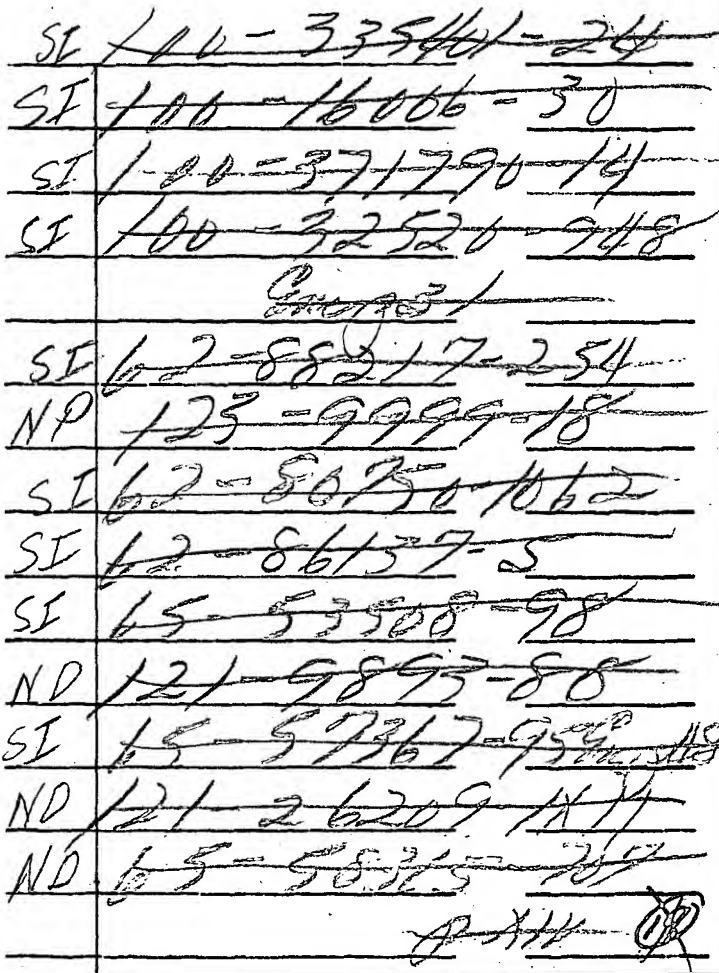 SI 100-335401-24
SI 100-16006-30
SI 100-371790-14
SI 100-32520-948
SI 62-88217-254
NP 123-9999-18
SI 62-80750-1062
SI 62-86137-5
SI 65-53508-98
ND 121-9893-88
SI 65-57367-959
ND 121-26209-1X11
ND 65-58365-707